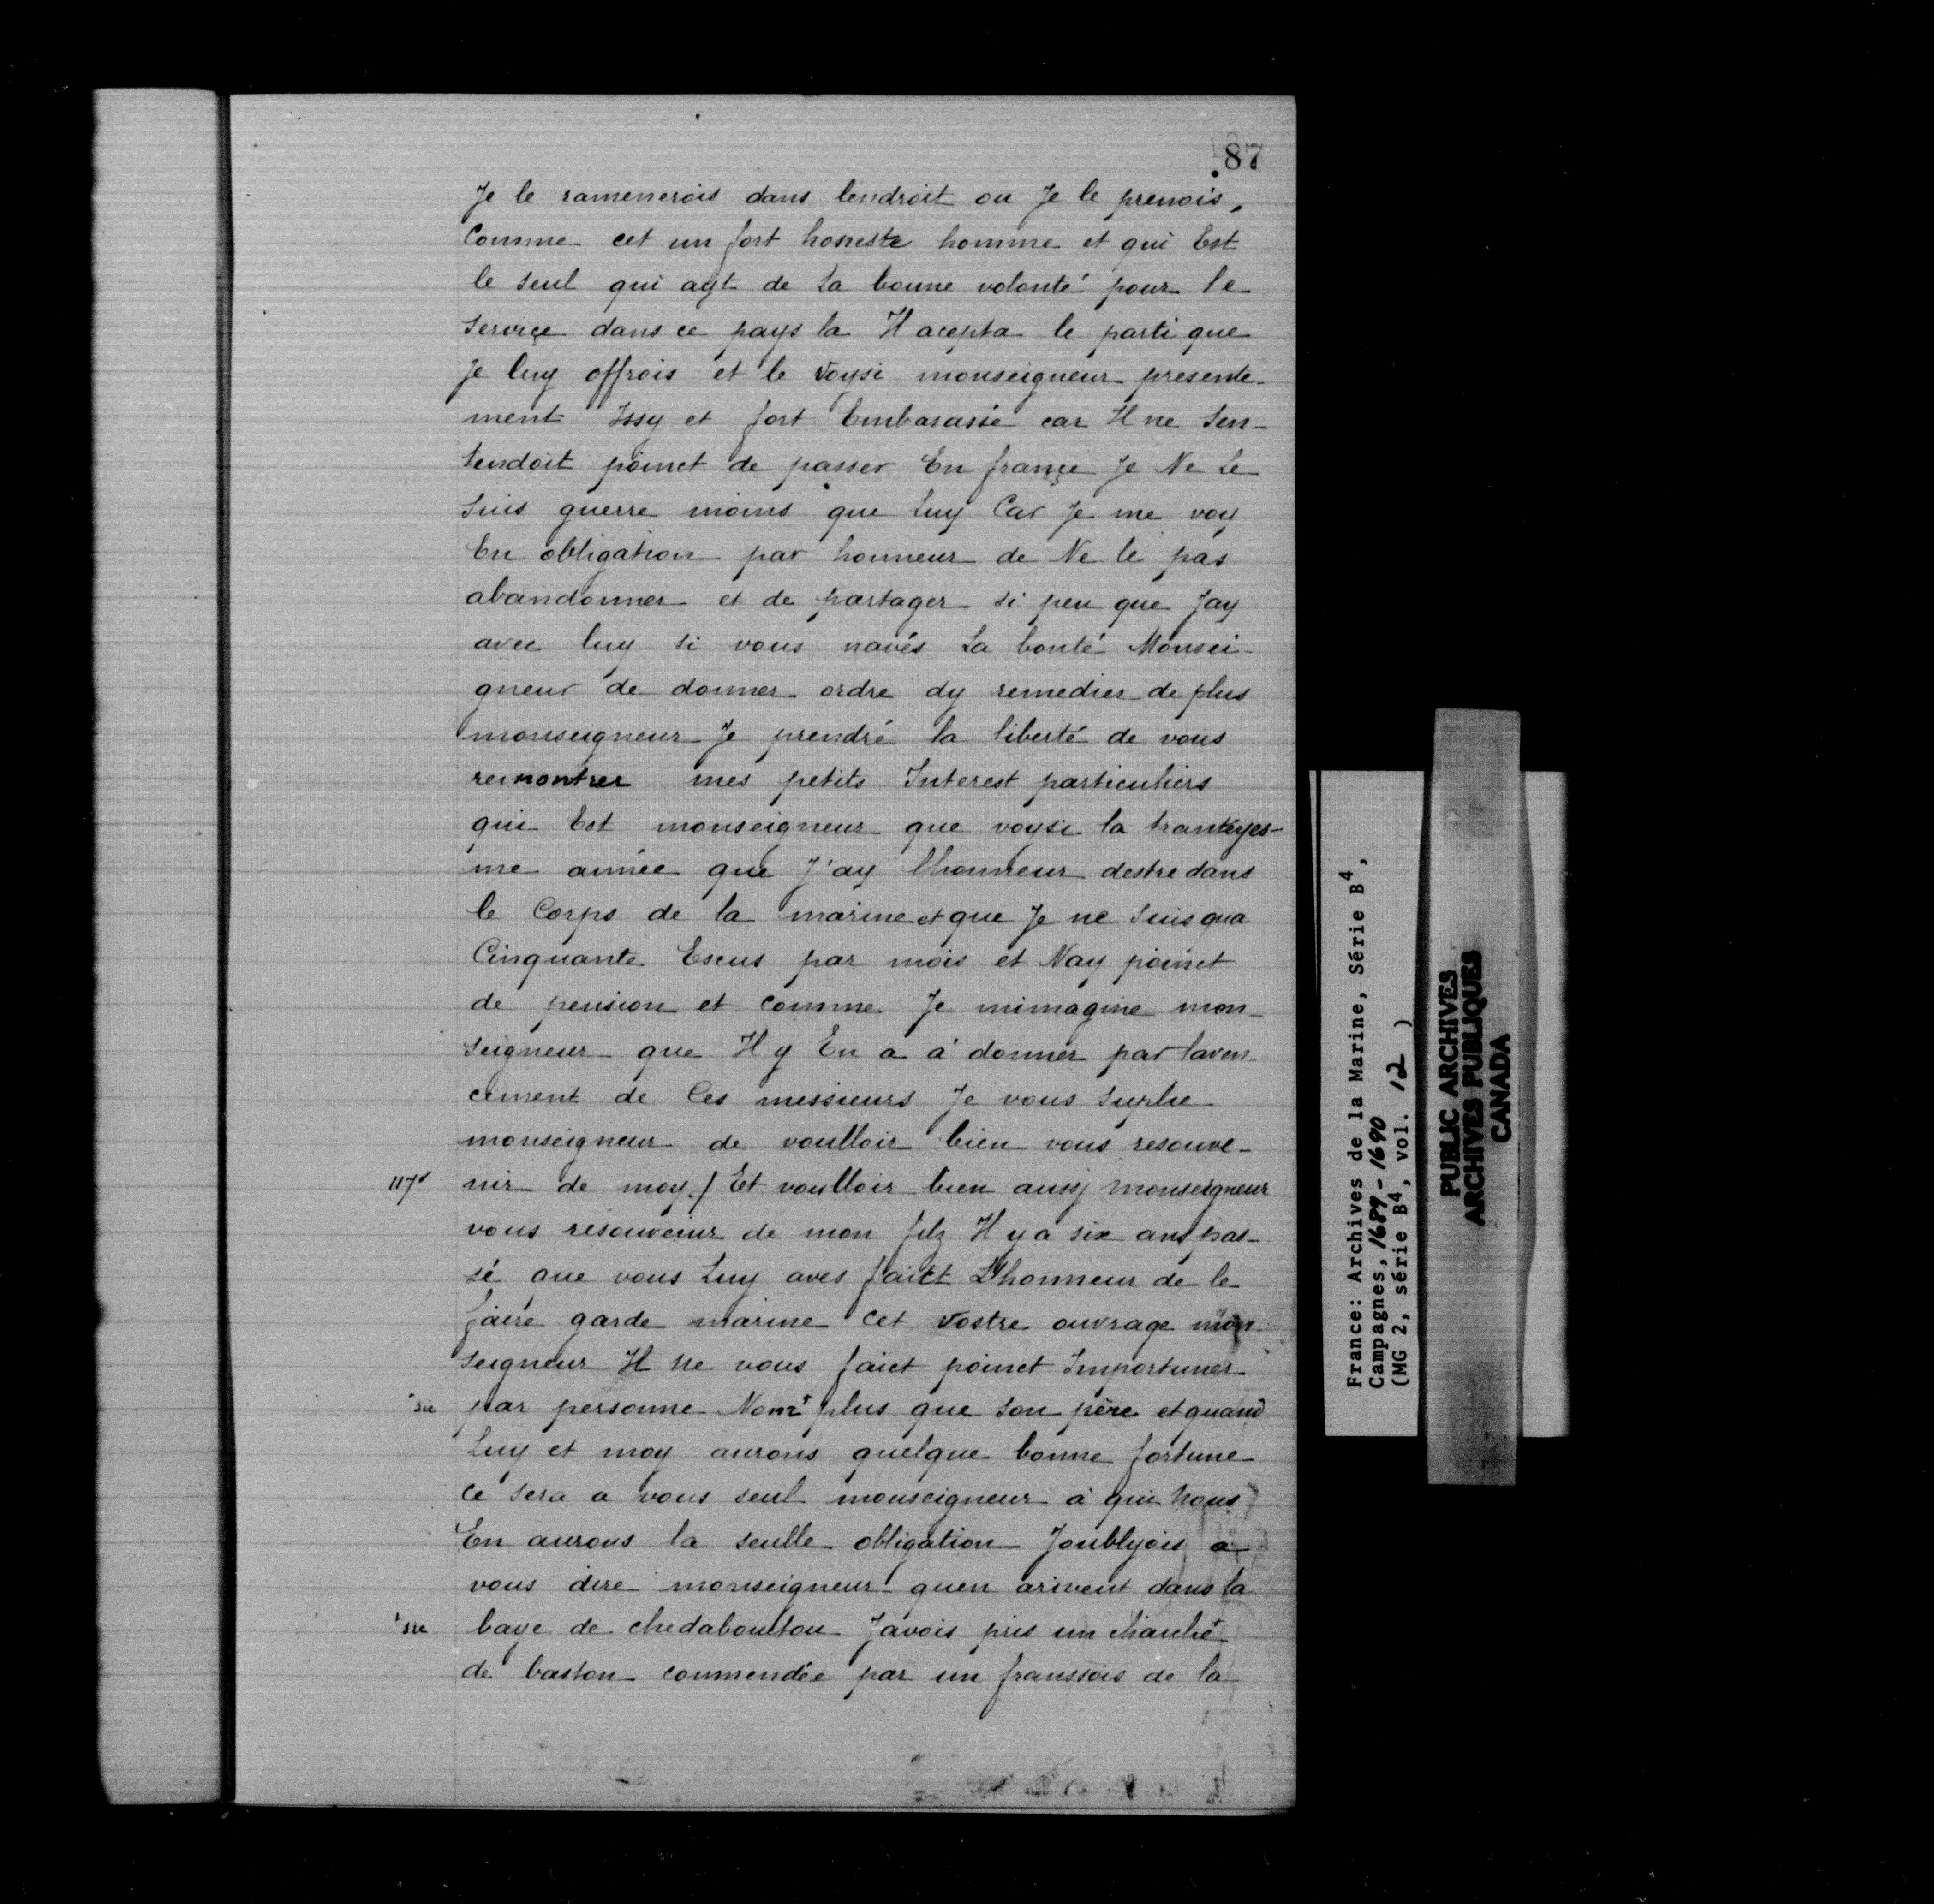 87
Je le ramenerois dans lendroit ou Je le prenois,
Comme cet un fort honeste homme et qui Est
le seul qui ayt de la bonne volonté pour le
service dans ce pays la Il acepta le parti que
Je luy offrois et le voysi monseigneur presente-
ment Issy et fort Embarassé car Il ne sen-
tendoit poinct de passer En françe Je Ne le
suis guerre moins que luy Car Je me voy
En obligation par honneur de Ne le pas
abandonner et de partager si peu que Jay
avec luy si vous navés la bonté Monsei-
gneur de donner ordre dy remedier de plus
monseigneur Je prendré la liberté de vous
remontrer mes petits Interest particuliers
qui Est monseigneur que voysi la trantéyes-
me année que J'ay lhonneur destre dans
le Corps de la marine et que Je ne suis qua
Cinquante Escus par mois et Nay poinct
de pension et comme Je mimagine mon-
seigneur que Il y En a à donner par laven-
cement de Ces messieurs Je vous suplie
monseigneur de voulloir bien vous resouve-
117v nir de moy./ Et voulloir bien aussy monseigneur
vous resouvenir de mon filz Il y a six ans pas-
sé que vous Luy aves faict Lhonneur de le
faire garde marine cet vostre ouvrage mon-
seigneur Il ne vous faict poinct Importuner
+sic par personne Nom+ plus que son père et quand
Luy et moy aurons quelque bonne fortune
ce sera a vous seul monseigneur à qui nous
En aurons la seulle obligation Joublyois a
vous dire monseigneur quen arivent dans la
+sic baye de chedaboutou Javois pris un chaiché+
de baston commendée par un franssois de la
France: Archives de la Marine, Série B4,
Campagnes, 1689-1690
(MG 2, série B4, vol. 12 )
PUBLIC ARCHIVES
ARCHIVES PUBLIQUES
CANADA